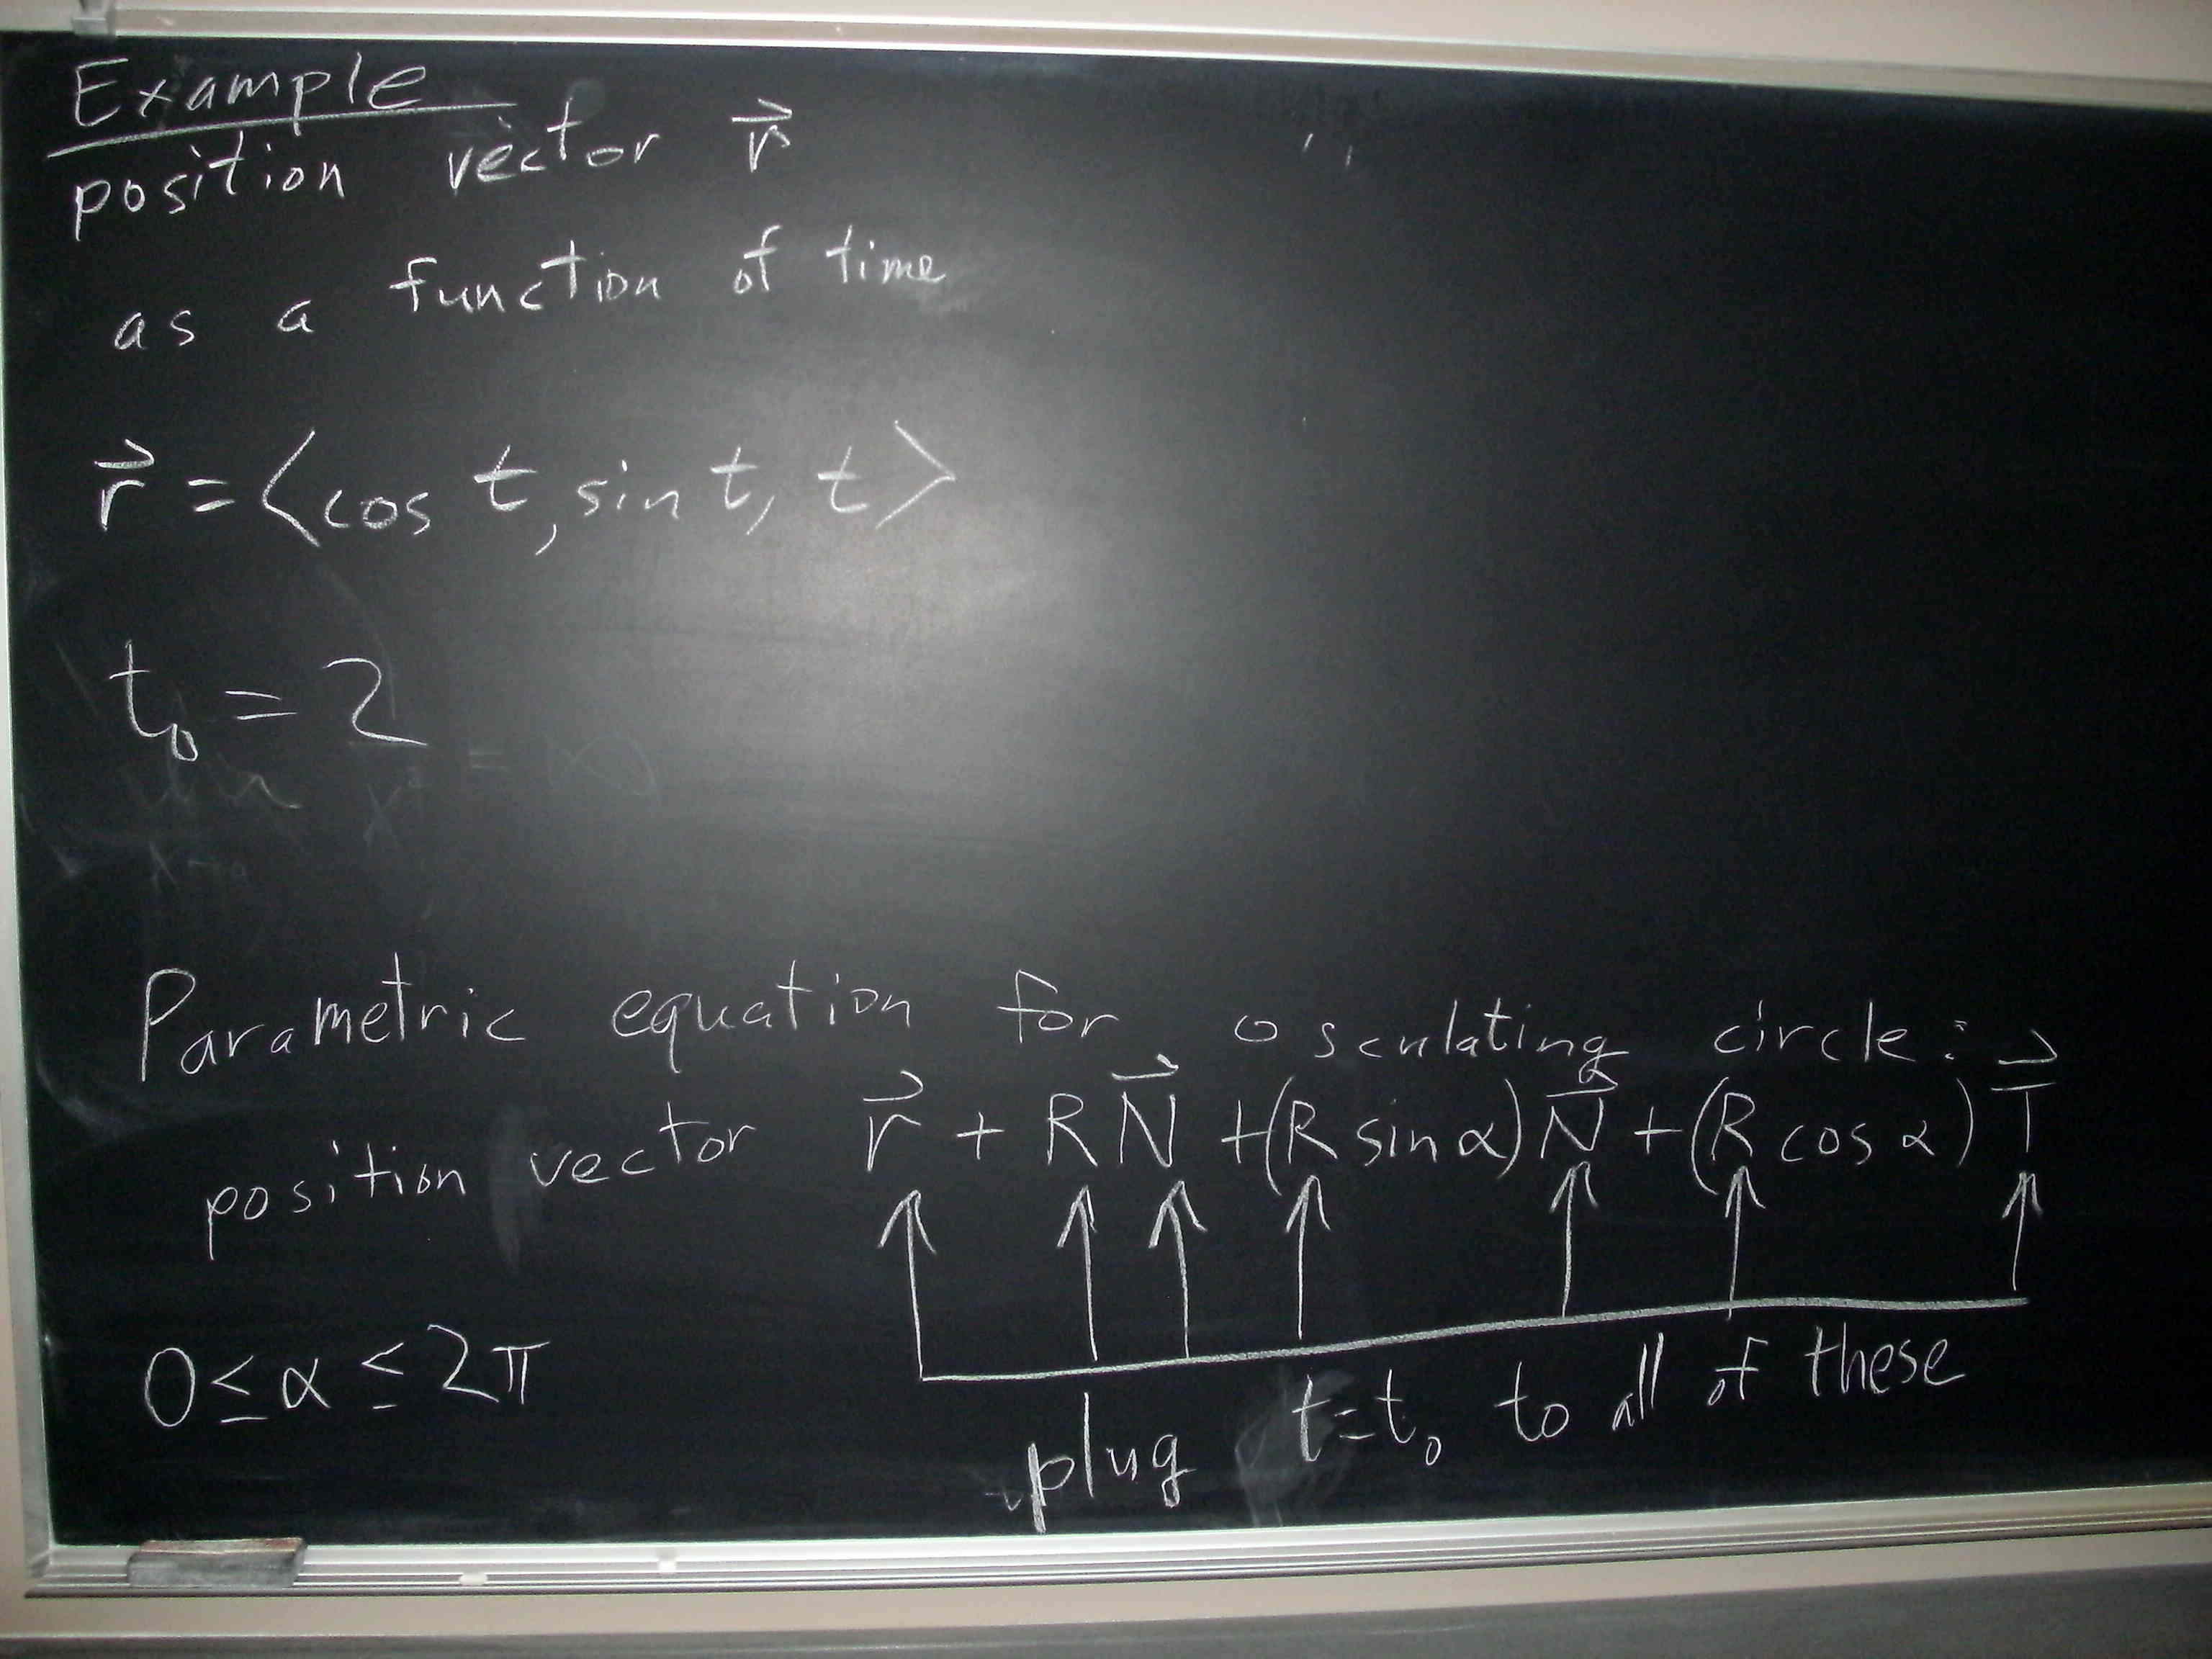 Example
position vector r⃗
as a function of time
r⃗ = ⟨cos t, sin t, t⟩
t₀ = 2
Parametric equation for osculating circle:
position vector r⃗ + R N⃗ + (R sin α) N⃗ + (R cos α) T⃗
0 ≤ α ≤ 2π
plug t = t₀ to all of these